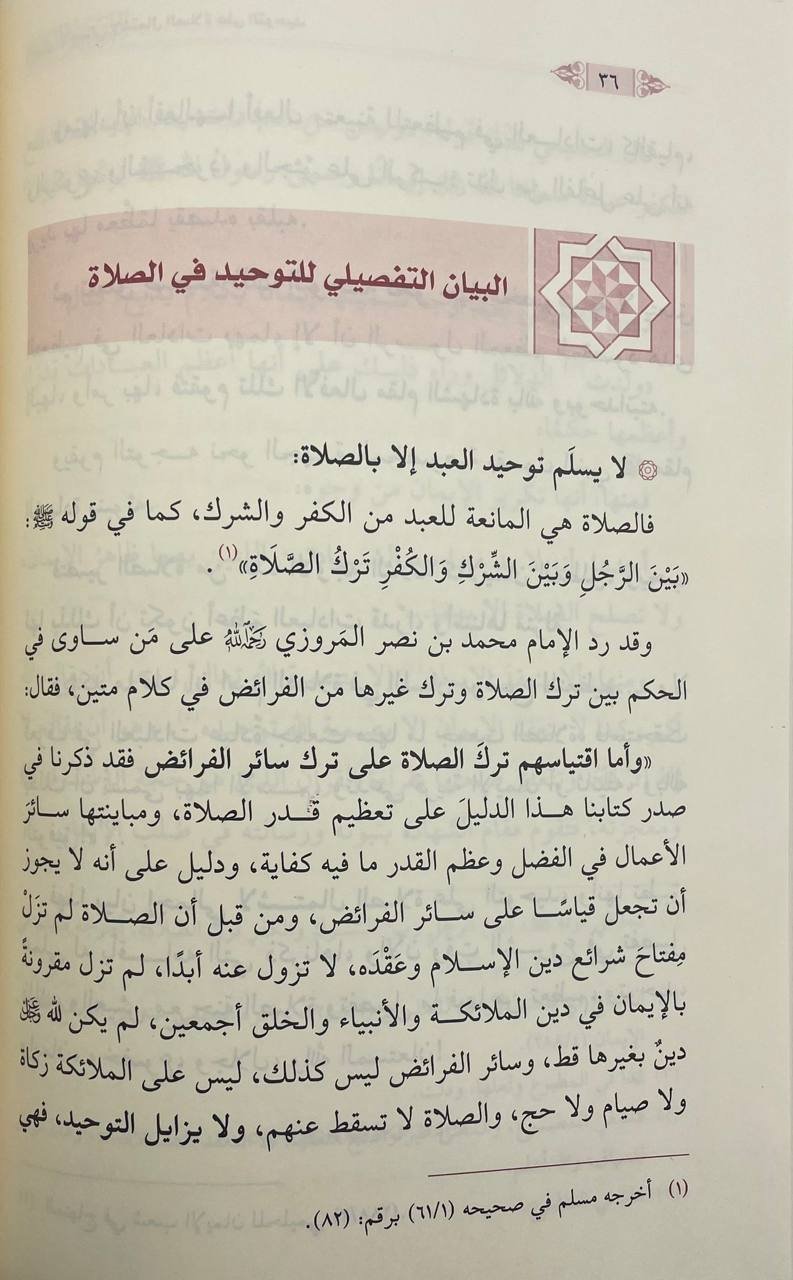 ٣٦
البيان التفصيلي للتوحيد في الصلاة
لا يسلَم توحيد العبد إلا بالصلاة:
فالصلاة هي المانعة للعبد من الكفر والشرك، كما في قوله ﷺ:
«بَيْنَ الرَّجُلِ وَبَيْنَ الشِّرْكِ وَالكُفْرِ تَرْكُ الصَّلَاةِ»(١).
وقد رد الإمام محمد بن نصر المَروزي رحمه الله على مَن ساوى في
الحكم بين ترك الصلاة وترك غيرها من الفرائض في كلام متين، فقال:
«وأما اقتياسهم تركَ الصلاة على ترك سائر الفرائض فقد ذكرنا في
صدر كتابنا هذا الدليلَ على تعظيم قَدر الصلاة، ومباينتها سائرَ
الأعمال في الفضل وعظم القدر ما فيه كفاية، ودليل على أنه لا يجوز
أن تجعل قياسًا على سائر الفرائض، ومن قبل أن الصلاة لم تزَلْ
مِفتاحَ شرائع دين الإسلام وعَقْدَه، لا تزول عنه أبدًا، لم تزل مقرونةً
بالإيمان في دين الملائكة والأنبياء والخلق أجمعين، لم يكن لله عز وجل
دينٌ بغيرها قط، وسائر الفرائض ليس كذلك، ليس على الملائكة زكاة
ولا صيام ولا حج، والصلاة لا تسقط عنهم، ولا يزايل التوحيد، فهي
(١) أخرجه مسلم في صحيحه (٦١/١) برقم: (٨٢).